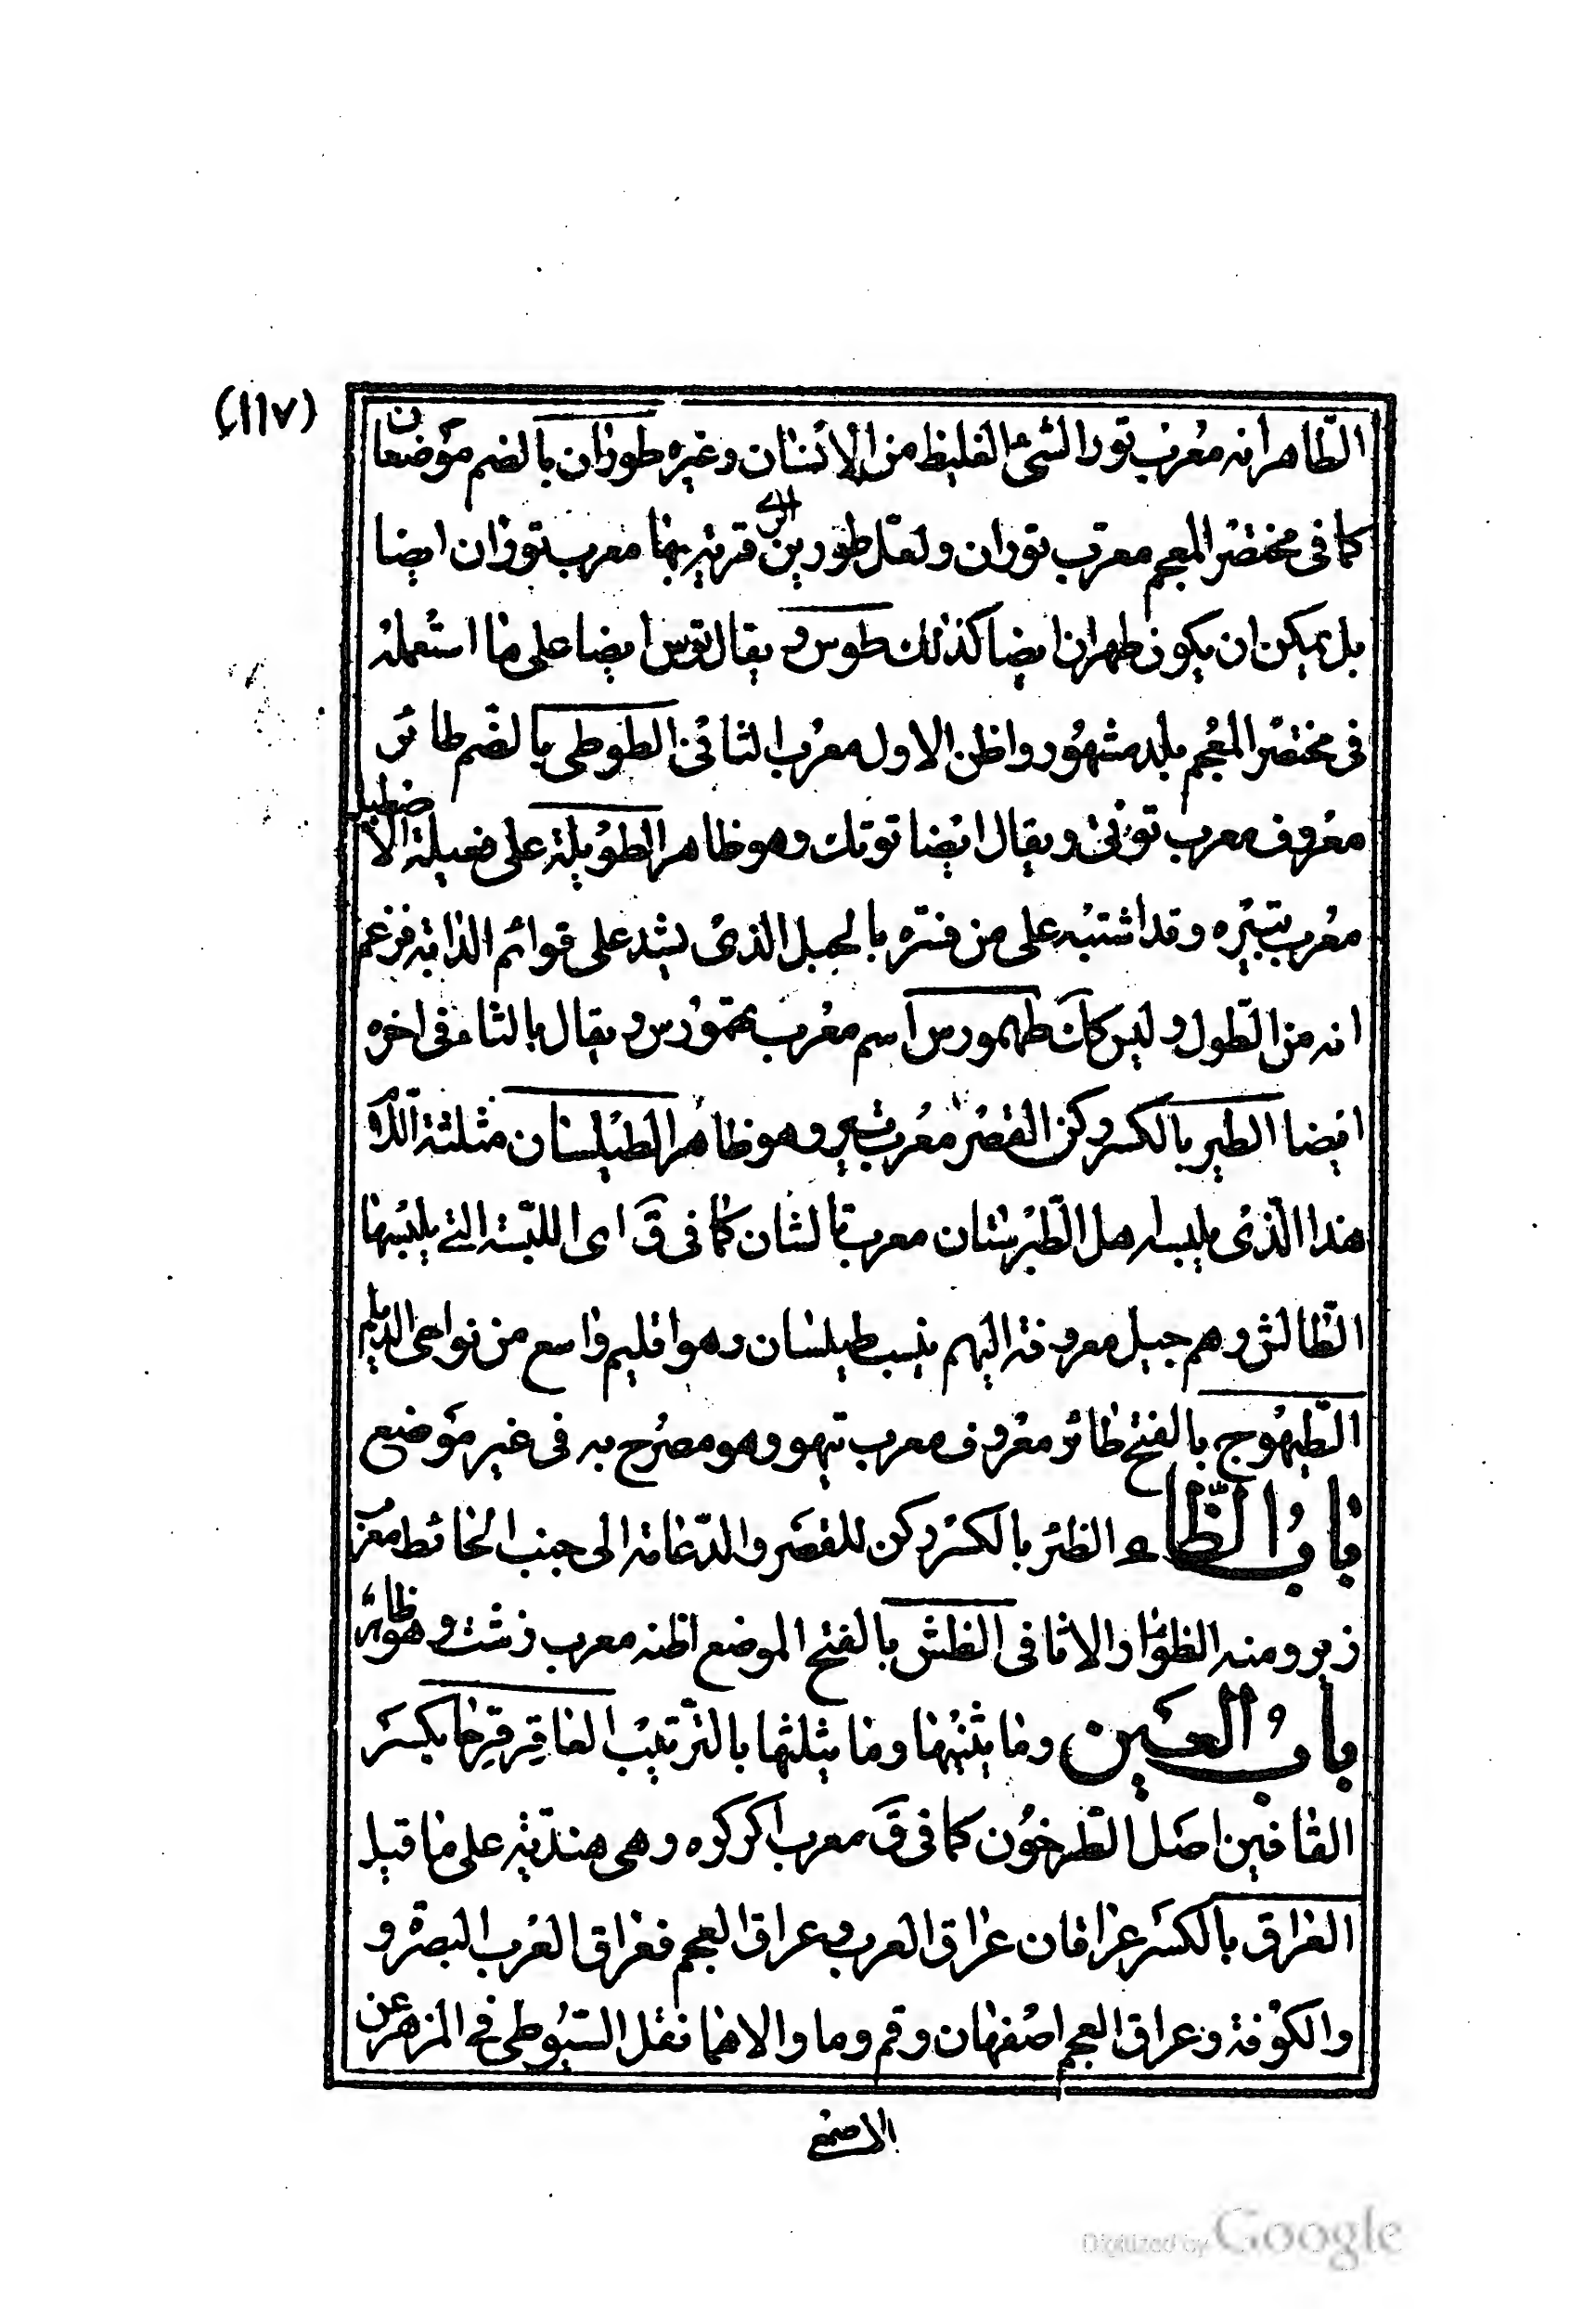 (١١٧)
الظاهر انه معرب تور الشئ الغليظ من الانسان وغيره طوران بالضم موضعان
كما فى مختصر المعجم معرب توران ولعل طورين قرية بها معرب توران ايضا
بل يمكن ان يكون طهران ايضا كذلك طوس و يقال توس ايضا على ما استعمله
فى مختصر المعجم بلد مشهور واظن الاول معرب الثانى الطوطى بالضم طائر
معروف معرب توتى ويقال ايضا توتك وهو ظاهر الطويلة على فعيلة الاصطبل
معرب تبيره وقد اشتبه على من فسره بالحبل الذى يشد على قوائم الدابة فزعم
انه من الطول و ليس كك طهمورس اسم معرب تهمورس و يقال بالثاء فى اخره
ايضا الطير بالكسر ركن القصر معرب تير وهو ظاهر الطيلسان مثلثة اللام
هذا الذى يلبسه اهل الطبرستان معرب تالشان كما فى ق اى اللبسة التى يلبسها
الطالش وهم جيل معروفة اليهم ينسب طيلسان وهو اقليم واسع من نواحى الديلم
الطيهوج بالفتح طائر معروف معرب تيهو وهو مصرح به فى غير موضع
باب الظاء الظئر بالكسر ركن للقصر والدعامة الى جنب الحائط معرب
زير ومنه الظؤار والاثافى الظش بالفتح الموضع اظنه معرب زشت وهو ظاهر
باب العين وما يثنيها وما يثلثها بالترتيب العاقر قرحا بكسر
القافين اصل الطرخون كما فى ق معرب اكركوه وهى هندية على ما قيل
العراق بالكسر عراقان عراق العرب وعراق العجم فعراق العرب البصرة و
والكوفة وعراق العجم اصفهان وقم وما والاهما نقل السيوطى فى المزهر عن
الاصمعى
Digitized by Google